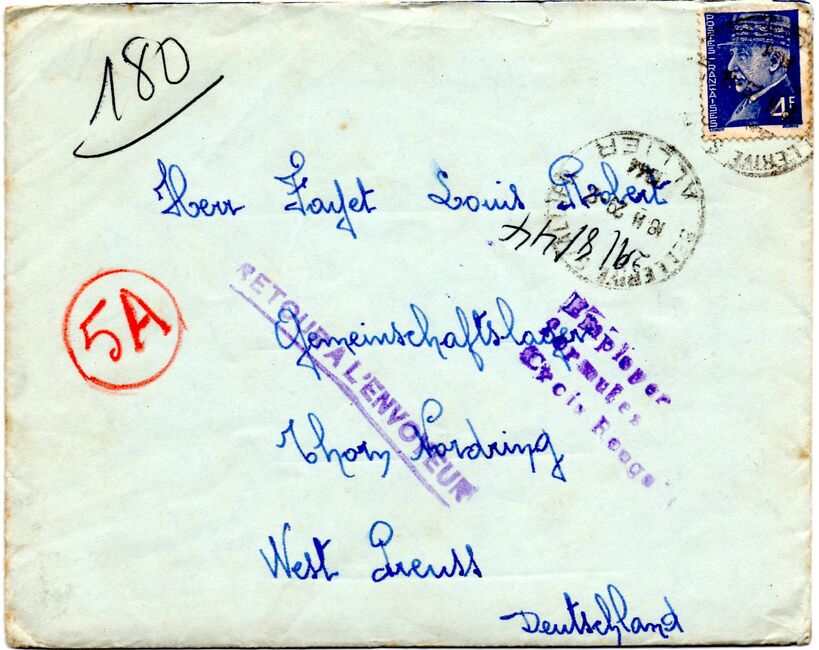 180
POSTES FRANÇAISES
4F
BELLERIVE
ALLIER
18 H 29 -8
1944
Herr Fayet Louis Robert
29/8/44
5A
RETOUR A L'ENVOYEUR
Gemeinschaftslager
Employer
formules
Croix Rouge
Thorn Nordring
West Preuss
Deutschland